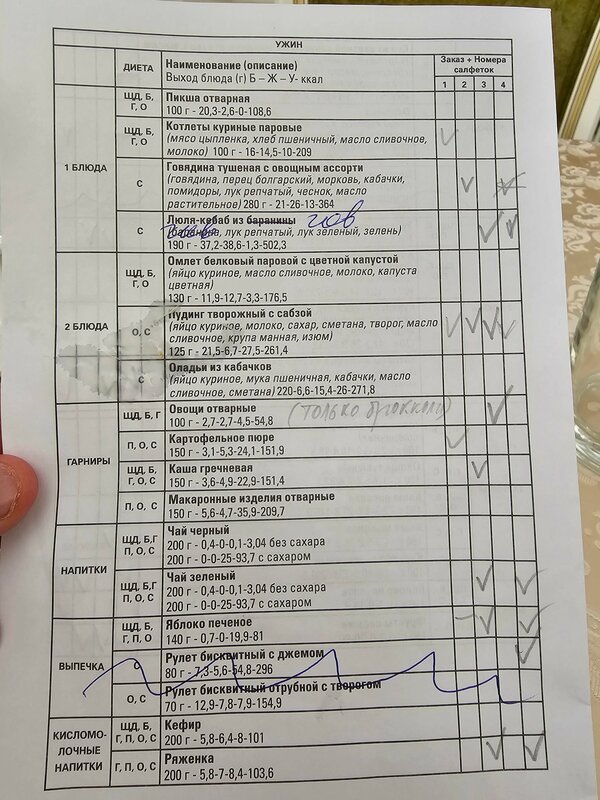 УЖИН
ДИЕТА
Наименование (описание)
Выход блюда (г) Б – Ж – У- ккал
Заказ + Номера
салфеток
1 2 3 4
1 БЛЮДА
ЩД, Б,
Г, О
Пикша отварная
100 г - 20,3-2,6-0-108,6
ЩД, Б,
Г, О
Котлеты куриные паровые
(мясо цыпленка, хлеб пшеничный, масло сливочное,
молоко) 100 г - 16-14,5-10-209
С
Говядина тушеная с овощным ассорти
(говядина, перец болгарский, морковь, кабачки,
помидоры, лук репчатый, чеснок, масло
растительное) 280 г - 21-26-13-364
С
Люля-кебаб из баранины гов
(баранина, лук репчатый, лук зеленый, зелень)
190 г - 37,2-38,6-1,3-502,3
2 БЛЮДА
ЩД, Б,
Г, О
Омлет белковый паровой с цветной капустой
(яйцо куриное, масло сливочное, молоко, капуста
цветная)
130 г - 11,9-12,7-3,3-176,5
О, С
Пудинг творожный с сабзой
(яйцо куриное, молоко, сахар, сметана, творог, масло
сливочное, крупа манная, изюм)
125 г - 21,5-6,7-27,5-261,4
С
Оладьи из кабачков
(яйцо куриное, мука пшеничная, кабачки, масло
сливочное, сметана) 220-6,6-15,4-26-271,8
ГАРНИРЫ
ЩД, Б, Г
Овощи отварные (только брокколи)
100 г - 2,7-2,7-4,5-54,8
П, О, С
Картофельное пюре
150 г - 3,1-5,3-24,1-151,9
ЩД, Б,
Г, О, С
Каша гречневая
150 г - 3,6-4,9-22,9-151,4
П, О, С
Макаронные изделия отварные
150 г - 5,6-4,7-35,9-209,7
НАПИТКИ
ЩД, Б,Г
П, О, С
Чай черный
200 г - 0,4-0-0,1-3,04 без сахара
200 г - 0-0-25-93,7 с сахаром
ЩД, Б,Г
П, О, С
Чай зеленый
200 г - 0,4-0-0,1-3,04 без сахара
200 г - 0-0-25-93,7 с сахаром
ВЫПЕЧКА
ЩД, Б,
Г, П, О
Яблоко печеное
140 г - 0,7-0-19,9-81
Рулет бисквитный с джемом
80 г - 7,3-5,6-54,8-296
О, С
Рулет бисквитный отрубной с творогом
70 г - 12,9-7,8-7,9-154,9
КИСЛОМО-
ЛОЧНЫЕ
НАПИТКИ
ЩД, Б,
Г, П, О, С
Кефир
200 г - 5,8-6,4-8-101
Г, П, О, С
Ряженка
200 г - 5,8-7-8,4-103,6